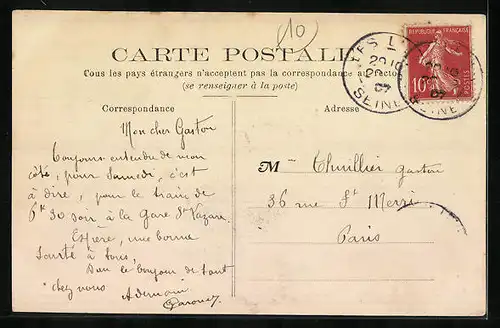 (10)
CARTE POSTALE
Tous les pays étrangers n'acceptent pas la correspondance au recto
(se renseigner à la poste)
Correspondance
Adresse
Mon cher Gaston
Toujours entendu de mon
côté, pour Samedi, c'est
à dire, pour le train de
6h 30 soir à la Gare St Lazare
Espère, une bonne
Santé à tous,
Bien le bonjour de tout
chez vous
A demain
M Thuillier Gaston
36 rue St Merri
Paris
REPUBLIQUE FRANÇAISE
10c
POSTES
SEINE